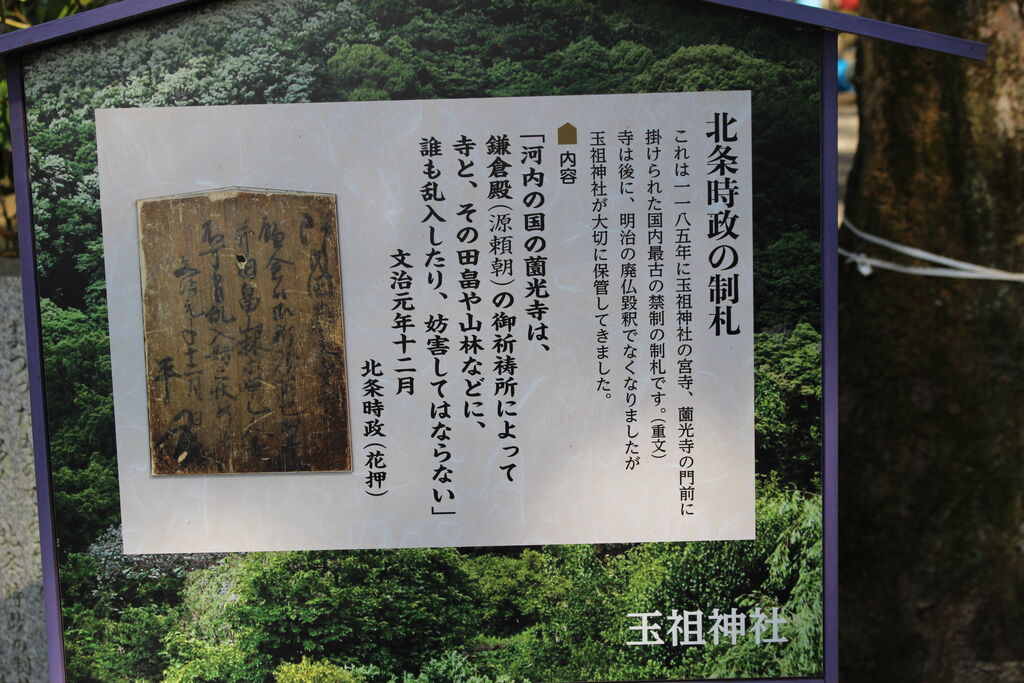 北条時政の制札
これは一一八五年に玉祖神社の宮寺、薗光寺の門前に
掛けられた国内最古の禁制の制札です。（重文）
寺は後に、明治の廃仏毀釈でなくなりましたが
玉祖神社が大切に保管してきました。
内容
「河内の国の薗光寺は、
鎌倉殿（源頼朝）の御祈祷所によって
寺と、その田畠や山林などに、
誰も乱入したり、妨害してはならない」
文治元年十二月
北条時政（花押）
玉祖神社